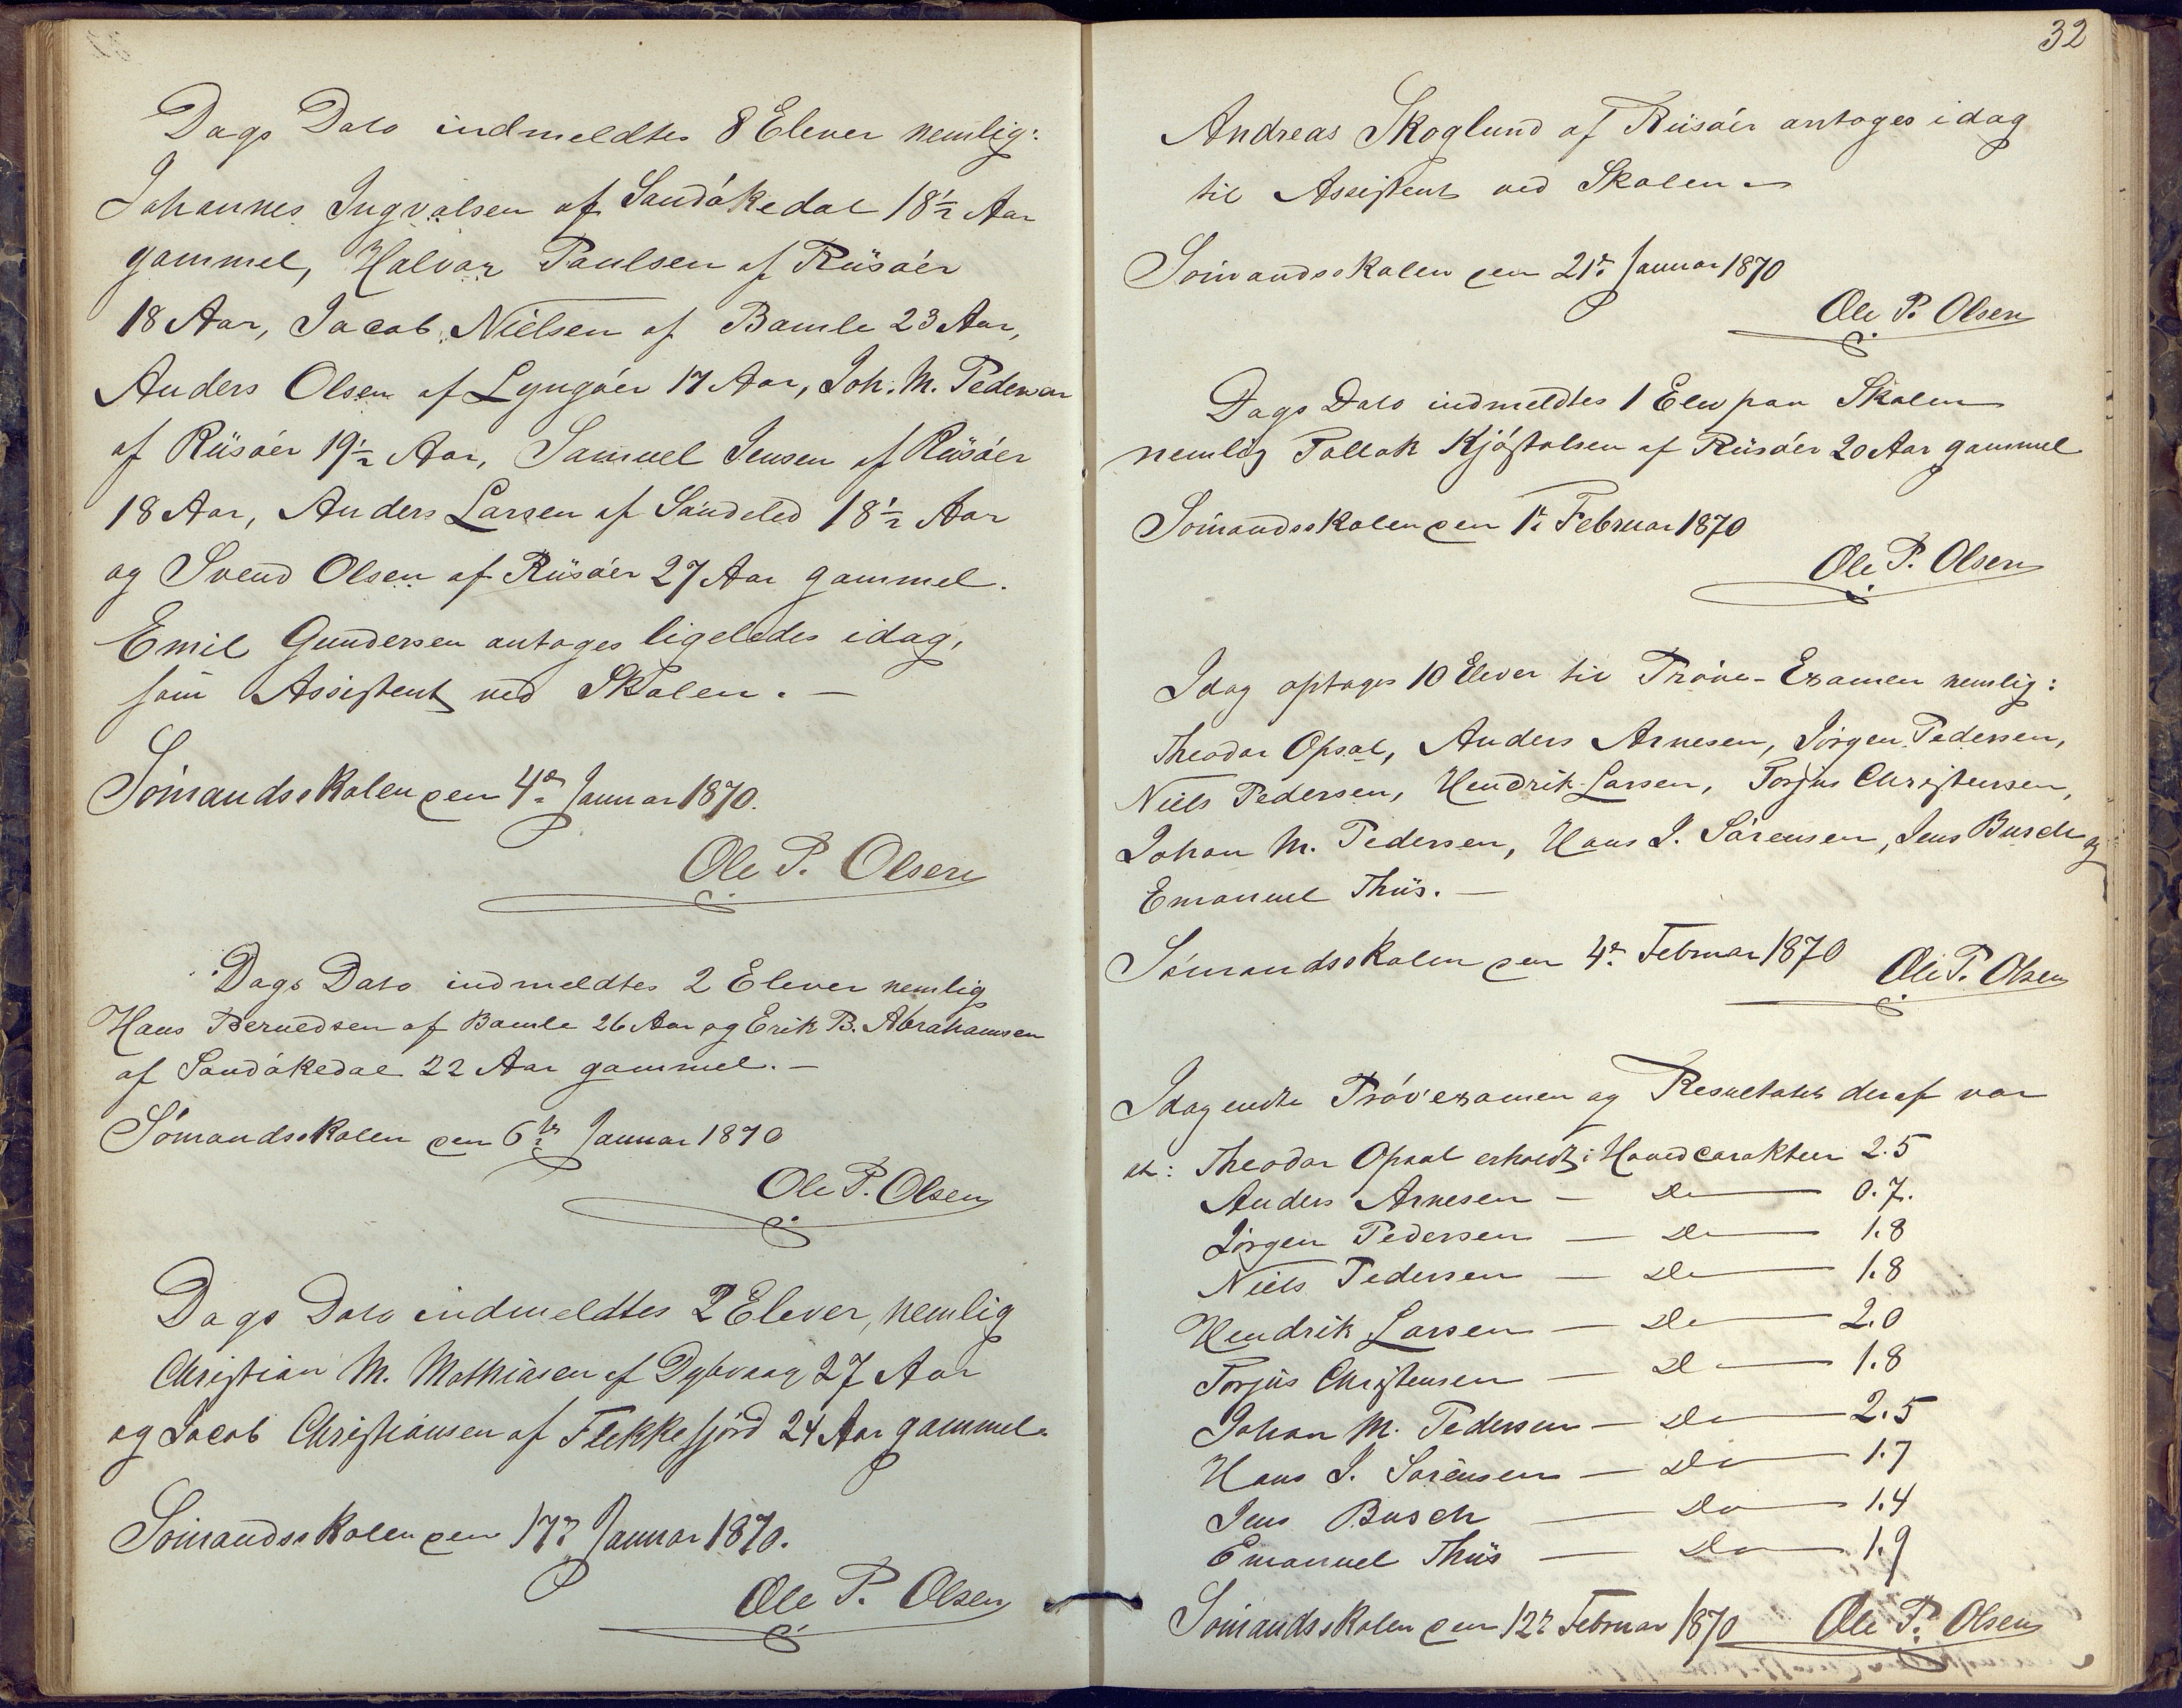 Dags Dato indmeldtes 8 Elever nemlig:
Johannes Ingvalsen af Sandökedal 18½ Aar
gammel, Halvor Paulsen af Riisöer
18 Aar, Jacob Nielsen af Bamle 23 Aar,
Anders Olsen af Lyngöer 17 Aar, Joh. M. Pedersen
af Riisöer 19½ Aar, Samuel Jensen af Riisöer
18 Aar, Anders Larsen af Söndeled 18½ Aar
og Svend Olsen af Riisöer 27 Aar gammel.
Emil Gundersen antoges ligeledes idag,
som Assistent ved Skolen. —
Sömandsskolen den 4de Januar 1870.
Ole P. Olsen
Dags Dato indmeldtes 2 Elever nemlig
Hans Berntsen af Bamle 26 Aar og Erik B. Abrahamsen
af Sandökedal 22 Aar gammel. —
Sömandsskolen den 6te Januar 1870
Ole P. Olsen
Dags Dato indmeldtes 2 Elever, nemlig
Christian M. Mathiasen af Dybvaag 27 Aar
og Jacob Christiansen af Flekkefjord 24 Aar gammel.
Sömandsskolen den 17. Januar 1870.
Ole P. Olsen
32
Andreas Skoglund af Riisöer antoges idag
til Assistent ved Skolen
Sömandsskolen den 21de Januar 1870
Ole P. Olsen
Dags Dato indmeldtes 1 Elev paa Skolen
nemlig Tallak Kjöstolsen af Riisöer 20 Aar gammel
Sömandsskolen den 1ste Februar 1870
Ole P. Olsen
Idag optages 10 Elever til Pröve-Examen nemlig:
Theodor Opsal, Anders Arnesen, Jörgen Pedersen,
Niels Pedersen, Hendrik Larsen, Torjus Christensen,
Johan M. Pedersen, Hans J. Sörensen, Jens Busch og
Emanuel Thiis. —
Sömandsskolen den 4de Februar 1870 Ole P. Olsen
Idag endte Prövexamen og Resultatet deraf var
at: Theodor Opsal erholdt i Hovedcarakteer 2.5
Anders Arnesen — Do — 0.7.
Jörgen Pedersen — Do — 1.8
Niels Pedersen — Do — 1.8
Hendrik Larsen — Do — 2.0
Torjus Christensen — Do — 1.8
Johan M. Pedersen — Do — 2.5
Hans J. Sörensen — Do — 1.7
Jens Busch — Do — 1.4
Emanuel Thiis — Do — 1.9
Sömandsskolen den 12. Februar 1870 Ole P. Olsen